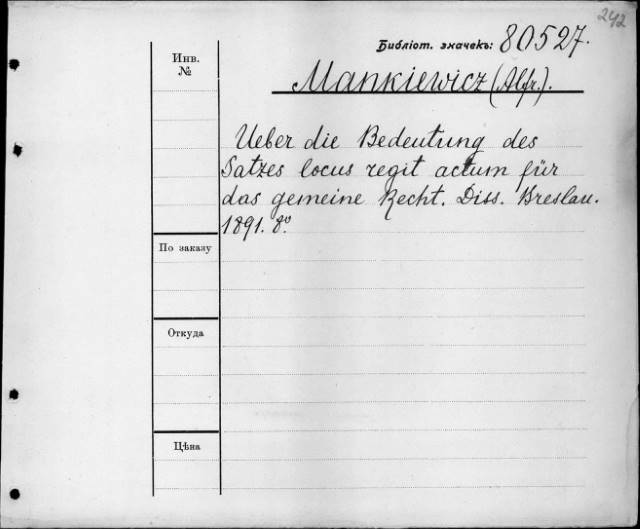 242
Библіот. значекъ: 80527.
Инв.
№
Mankiewicz (Alfr.).
Ueber die Bedeutung des
Satzes locus regit actum für
das gemeine Recht. Diss. Breslau.
1891. 8º.
По заказу
Откуда
Цѣна